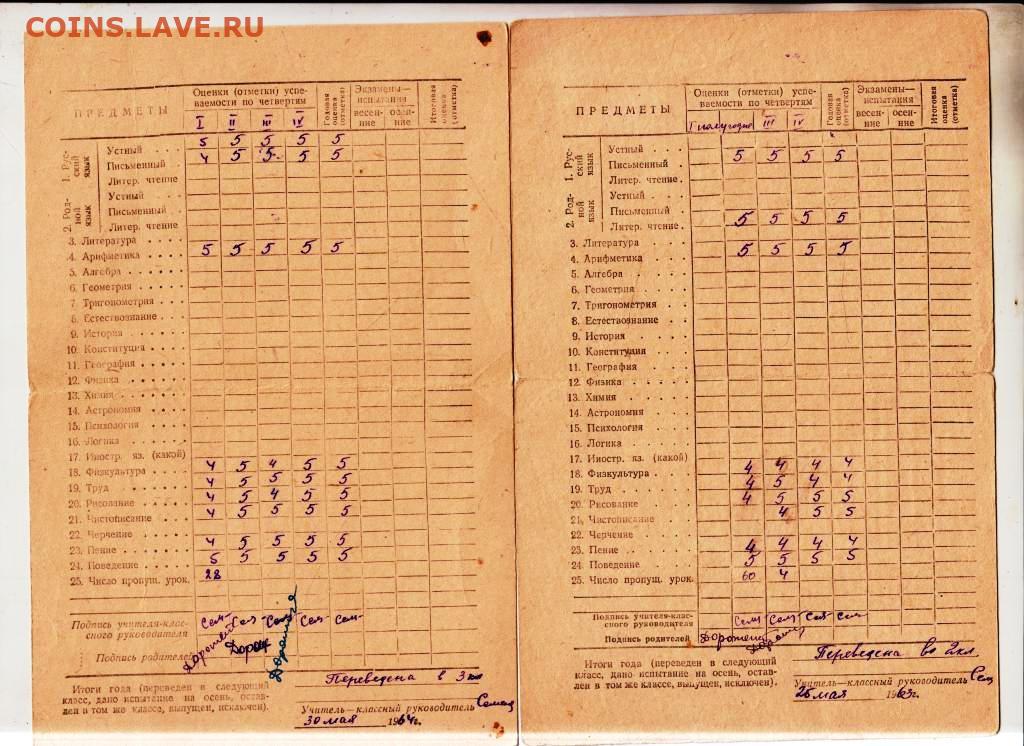 COINS.LAVE.RU
ПРЕДМЕТЫ
Оценки (отметки) успе-
ваемости по четвертям
I II III IV
Годовая оценка (отметка)
Экзамены—
испытания
весен-
ние
осе-
ние
Итоговая оценка (отметка)
1. Рус-
ский
язык
Устный . . . 5 5 5 5 5
Письменный . 4 5 5 5 5
Литер. чтение
2. Род-
ной
язык
Устный . . .
Письменный .
Литер. чтение
3. Литература . . . .
4. Арифметика . . . . 5 5 5 5 5
5. Алгебра . . . . .
6. Геометрия . . . .
7. Тригонометрия . . .
8. Естествознание . . .
9. История . . . .
10. Конституция . . . .
11. География . . . .
12. Физика . . . .
13. Химия . . . .
14. Астрономия . . . .
15. Психология . . . .
16. Логика . . . .
17. Иностр. яз. (какой)
18. Физкультура . . . . 4 5 4 5 5
19. Труд . . . . 4 5 5 5 5
20. Рисование . . . . 4 5 4 5 5
21. Чистописание . . . 4 5 5 5 5
22. Черчение . . . .
23. Пение . . . . 4 5 5 5 5
24. Поведение . . . . 5 5 5 5 5
25. Число пропущ. урок. 28
Подпись учителя-клас-
сного руководителя
Сем Сем Сем Сем Сем
Подпись родителей
Итоги года (переведен в следующий
класс, дано испытание на осень, остав-
лен в том же классе, выпущен, исключен).
Переведена в 3 кл
Учитель—классный руководитель
30 мая 1964 г.
ПРЕДМЕТЫ
Оценки (отметки) успе-
ваемости по четвертям
I полугодие III IV
Годовая оценка (отметка)
Экзамены—
испытания
весен-
ние
осе-
ние
Итоговая оценка (отметка)
1. Рус-
ский
язык
Устный . . . 5 5 5 5
Письменный .
Литер. чтение .
2. Род-
ной
язык
Устный . . .
Письменный . 5 5 5 5
Литер. чтение .
3. Литература . . . . 5 5 5 5
4. Арифметика . . . .
5. Алгебра . . . .
6. Геометрия . . . .
7. Тригонометрия . . .
8. Естествознание . . .
9. История . . . .
10. Конституция . . . .
11. География . . . .
12. Физика . . . .
13. Химия . . . .
14. Астрономия . . . .
15. Психология . . . .
16. Логика . . . .
17. Иностр. яз. (какой)
18. Физкультура . . . 4 4 4 4
19. Труд . . . . 4 5 4 4
20. Рисование . . . . 4 5 5 5
21. Чистописание . . . 4 5 5
22. Черчение . . . .
23. Пение . . . . 4 4 4 4
24. Поведение . . . . 5 5 5 5
25. Число пропущ. урок. 60 4
Подпись учителя-клас-
сного руководителя
Сем Сем Сем Сем
Подпись родителей
Итоги года (переведен в следующий
класс, дано испытание на осень, остав-
лен в том же классе, выпущен, исключен).
Переведена во 2 кл.
Учитель—классный руководитель Сем
26 мая 1963 г.